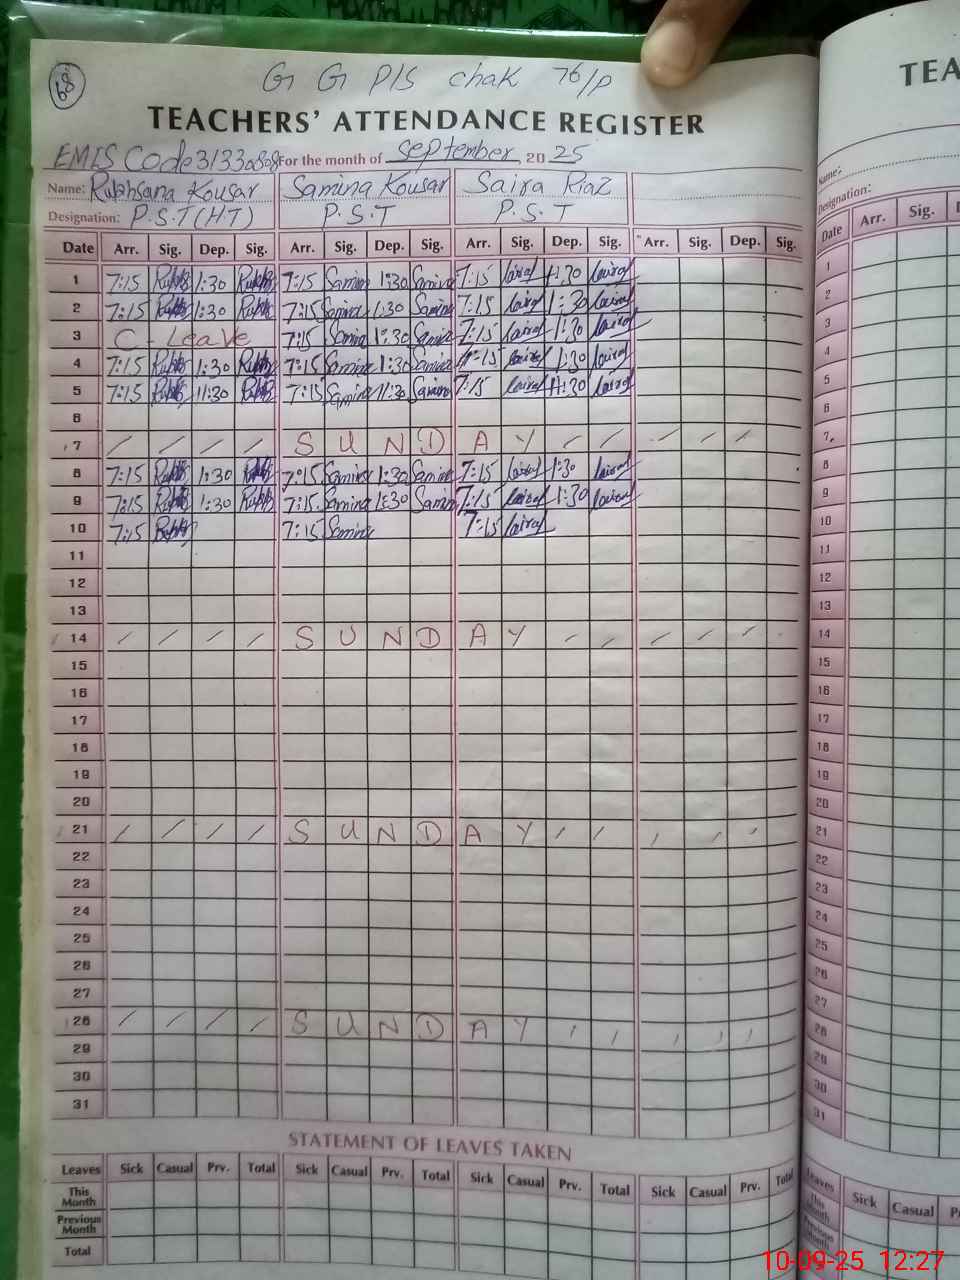 68
G G P/S chak 76/P
TEACHERS' ATTENDANCE REGISTER
EMIS Code 31330808 For the month of September 2025
Name: Rukhsana Kousar Samina Kousar Saira Riaz
Designation: P.S.T (HT) P.S.T P.S.T
Date Arr. Sig. Dep. Sig. Arr. Sig. Dep. Sig. Arr. Sig. Dep. Sig. Arr. Sig. Dep. Sig.
1 7:15 1:30 7:15 Samina 1:30 Samina 7:15 1:30
2 7:15 1:30 7:15 Samina 1:30 Samina 7:15 1:30
3 C - Leave 7:15 Samina 1:30 Samina 7:15 1:30
4 7:15 1:30 7:15 Samina 1:30 Samina 7:15 1:30
5 7:15 1:30 7:15 Samina 1:30 Samina 7:15 1:30
6
7 / / / / S U N D A Y / / / / /
8 7:15 1:30 7:15 Samina 1:30 Samina 7:15 1:30
9 7:15 1:30 7:15 Samina 1:30 Samina 7:15 1:30
10 7:15 7:15 Samina 7:15
11
12
13
14 / / / / S U N D A Y / / / / /
15
16
17
18
19
20
21 / / / / S U N D A Y / / / / /
22
23
24
25
26
27
28 / / / / S U N D A Y / / / / /
29
30
31
STATEMENT OF LEAVES TAKEN
Leaves Sick Casual Prv. Total Sick Casual Prv. Total Sick Casual Prv. Total Sick Casual Prv. Total
This Month
Previous Month
Total
TEA
Name:
Designation:
Date Arr. Sig.
1
2
3
4
5
6
7
8
9
10
11
12
13
14
15
16
17
18
19
20
21
22
23
24
25
26
27
28
29
30
31
Leaves Sick Casual
This Month
Previous Month
Total
10-09-25 12:27